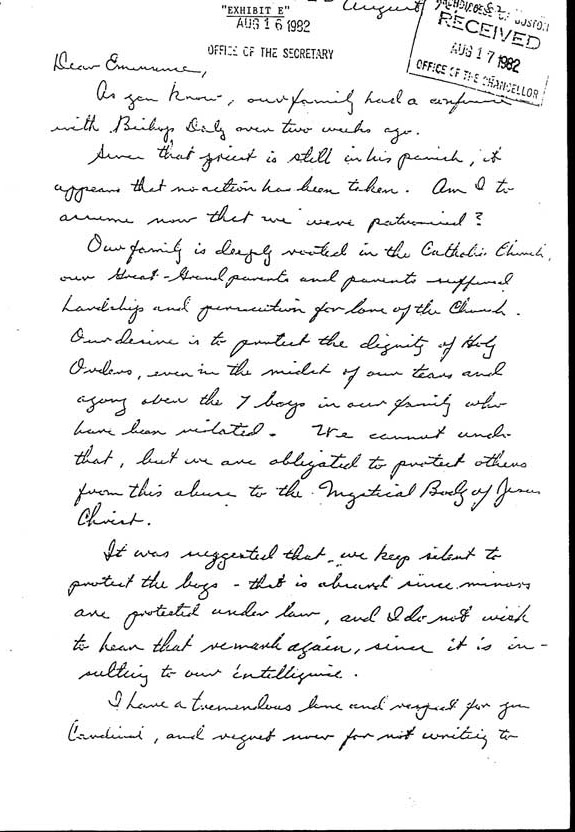 "EXHIBIT E"
August
AUG 16 1982
OFFICE OF THE SECRETARY
ARCHDIOCESE OF BOSTON
RECEIVED
AUG 17 1982
OFFICE OF THE CHANCELLOR
Dear Eminence,
As you know, our family had a
with Bishop Daly over two weeks ago.
Since that priest is still in his parish, it
appears that no action has been taken. Am I to
assume now that we were patronized?
Our family is deeply rooted in the Catholic Church,
our Great-Grandparents and parents suffered
hardship and persecution for love of the Church.
Our desire is to protect the dignity of Holy
Orders, even in the midst of our tears and
agony over the 7 boys in our family who
have been violated. We cannot undo
that, but we are obligated to protect others
from this abuse to the Mystical Body of Jesus
Christ.
It was suggested that we keep silent to
protect the boys - that is absurd since minors
are protected under law, and I do not wish
to hear that remark again, since it is in-
sulting to our intelligence.
I have a tremendous love and respect for you
Cardinal, and regret now for not writing to